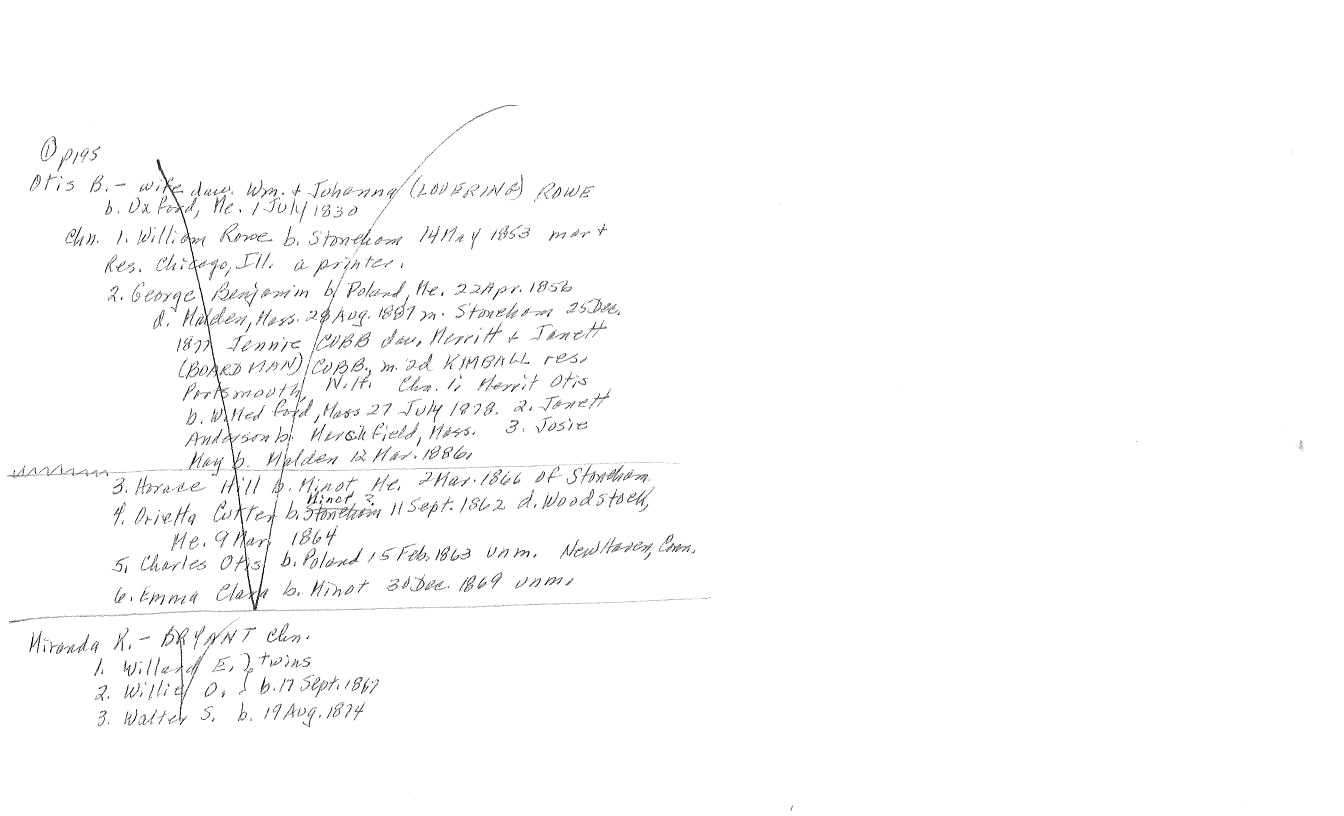 ① p195
Otis B. - wife dau. Wm. + Johanna (LOVERING) ROWE
b. Oxford, Me. 1 July 1830
Chn. 1. William Rowe b. Stoneham 14 May 1853 mar +
Res. Chicago, Ill. a printer.
2. George Benjamin b. Poland, Me. 22 Apr. 1856
d. Malden, Mass. 28 Aug. 1887 m. Stoneham 25 Dec.
1877 Jennie COBB dau. Merritt + Janett
(BOARDMAN) COBB, m. 2d KIMBALL res.
Portsmouth, N.H. Chn. 1. Merrit Otis
b. W. Medford, Mass 27 July 1878. 2. Janett
Anderson b. Marshfield, Mass. 3. Josie
May b. Malden 12 Mar. 1886.
3. Horace Hill b. Minot Me. 2 Mar. 1866 of Stoneham
Minot ?
4. Orietta Cutter b. Stoneham 11 Sept. 1862 d. Woodstock,
Me. 9 Mar. 1864
5. Charles Otis b. Poland 15 Feb. 1863 unm. New Haven, Conn.
6. Emma Clara b. Minot 30 Dec. 1869 unm.
Miranda R. - BRYANT chn.
1. Willard E. } twins
2. Willie O. } b. 17 Sept. 1867
3. Walter S. b. 19 Aug. 1874